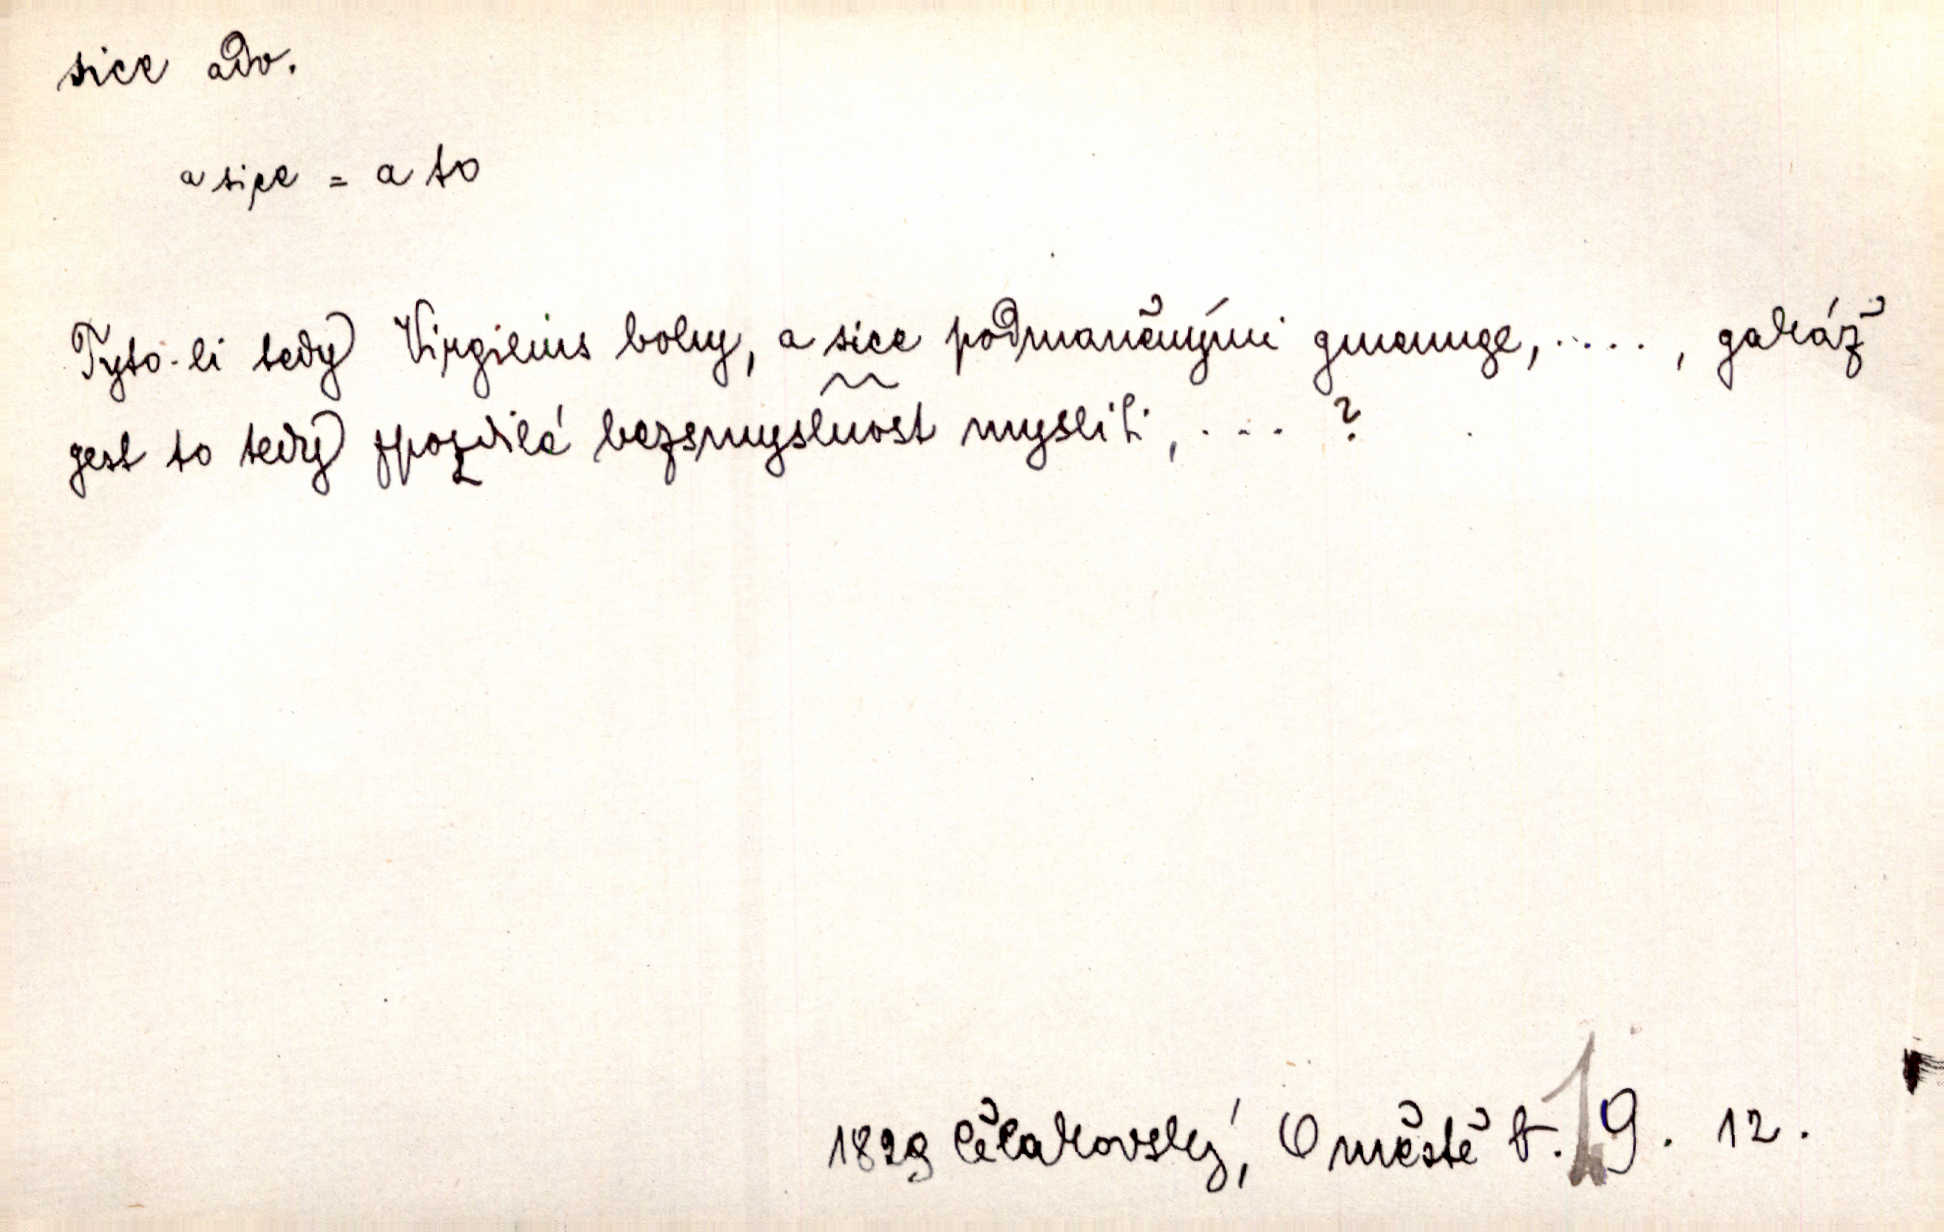 sice adv.
a sice = a to
Tyto-li tedy Virgilius bohy, a sice podmaněnými gmenuge, ....., gakáž
gest to tedy zpozdilá bezsmyslnost mysliti, .... ?
1829 Čelakovský, O městě b. 19. 12.